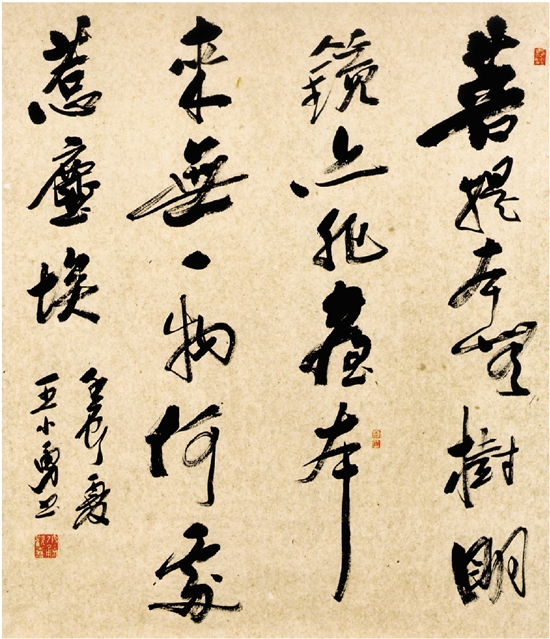 菩提本無樹明
鏡亦非臺本
來無一物何處
惹塵埃
壬辰夏
王小勇書